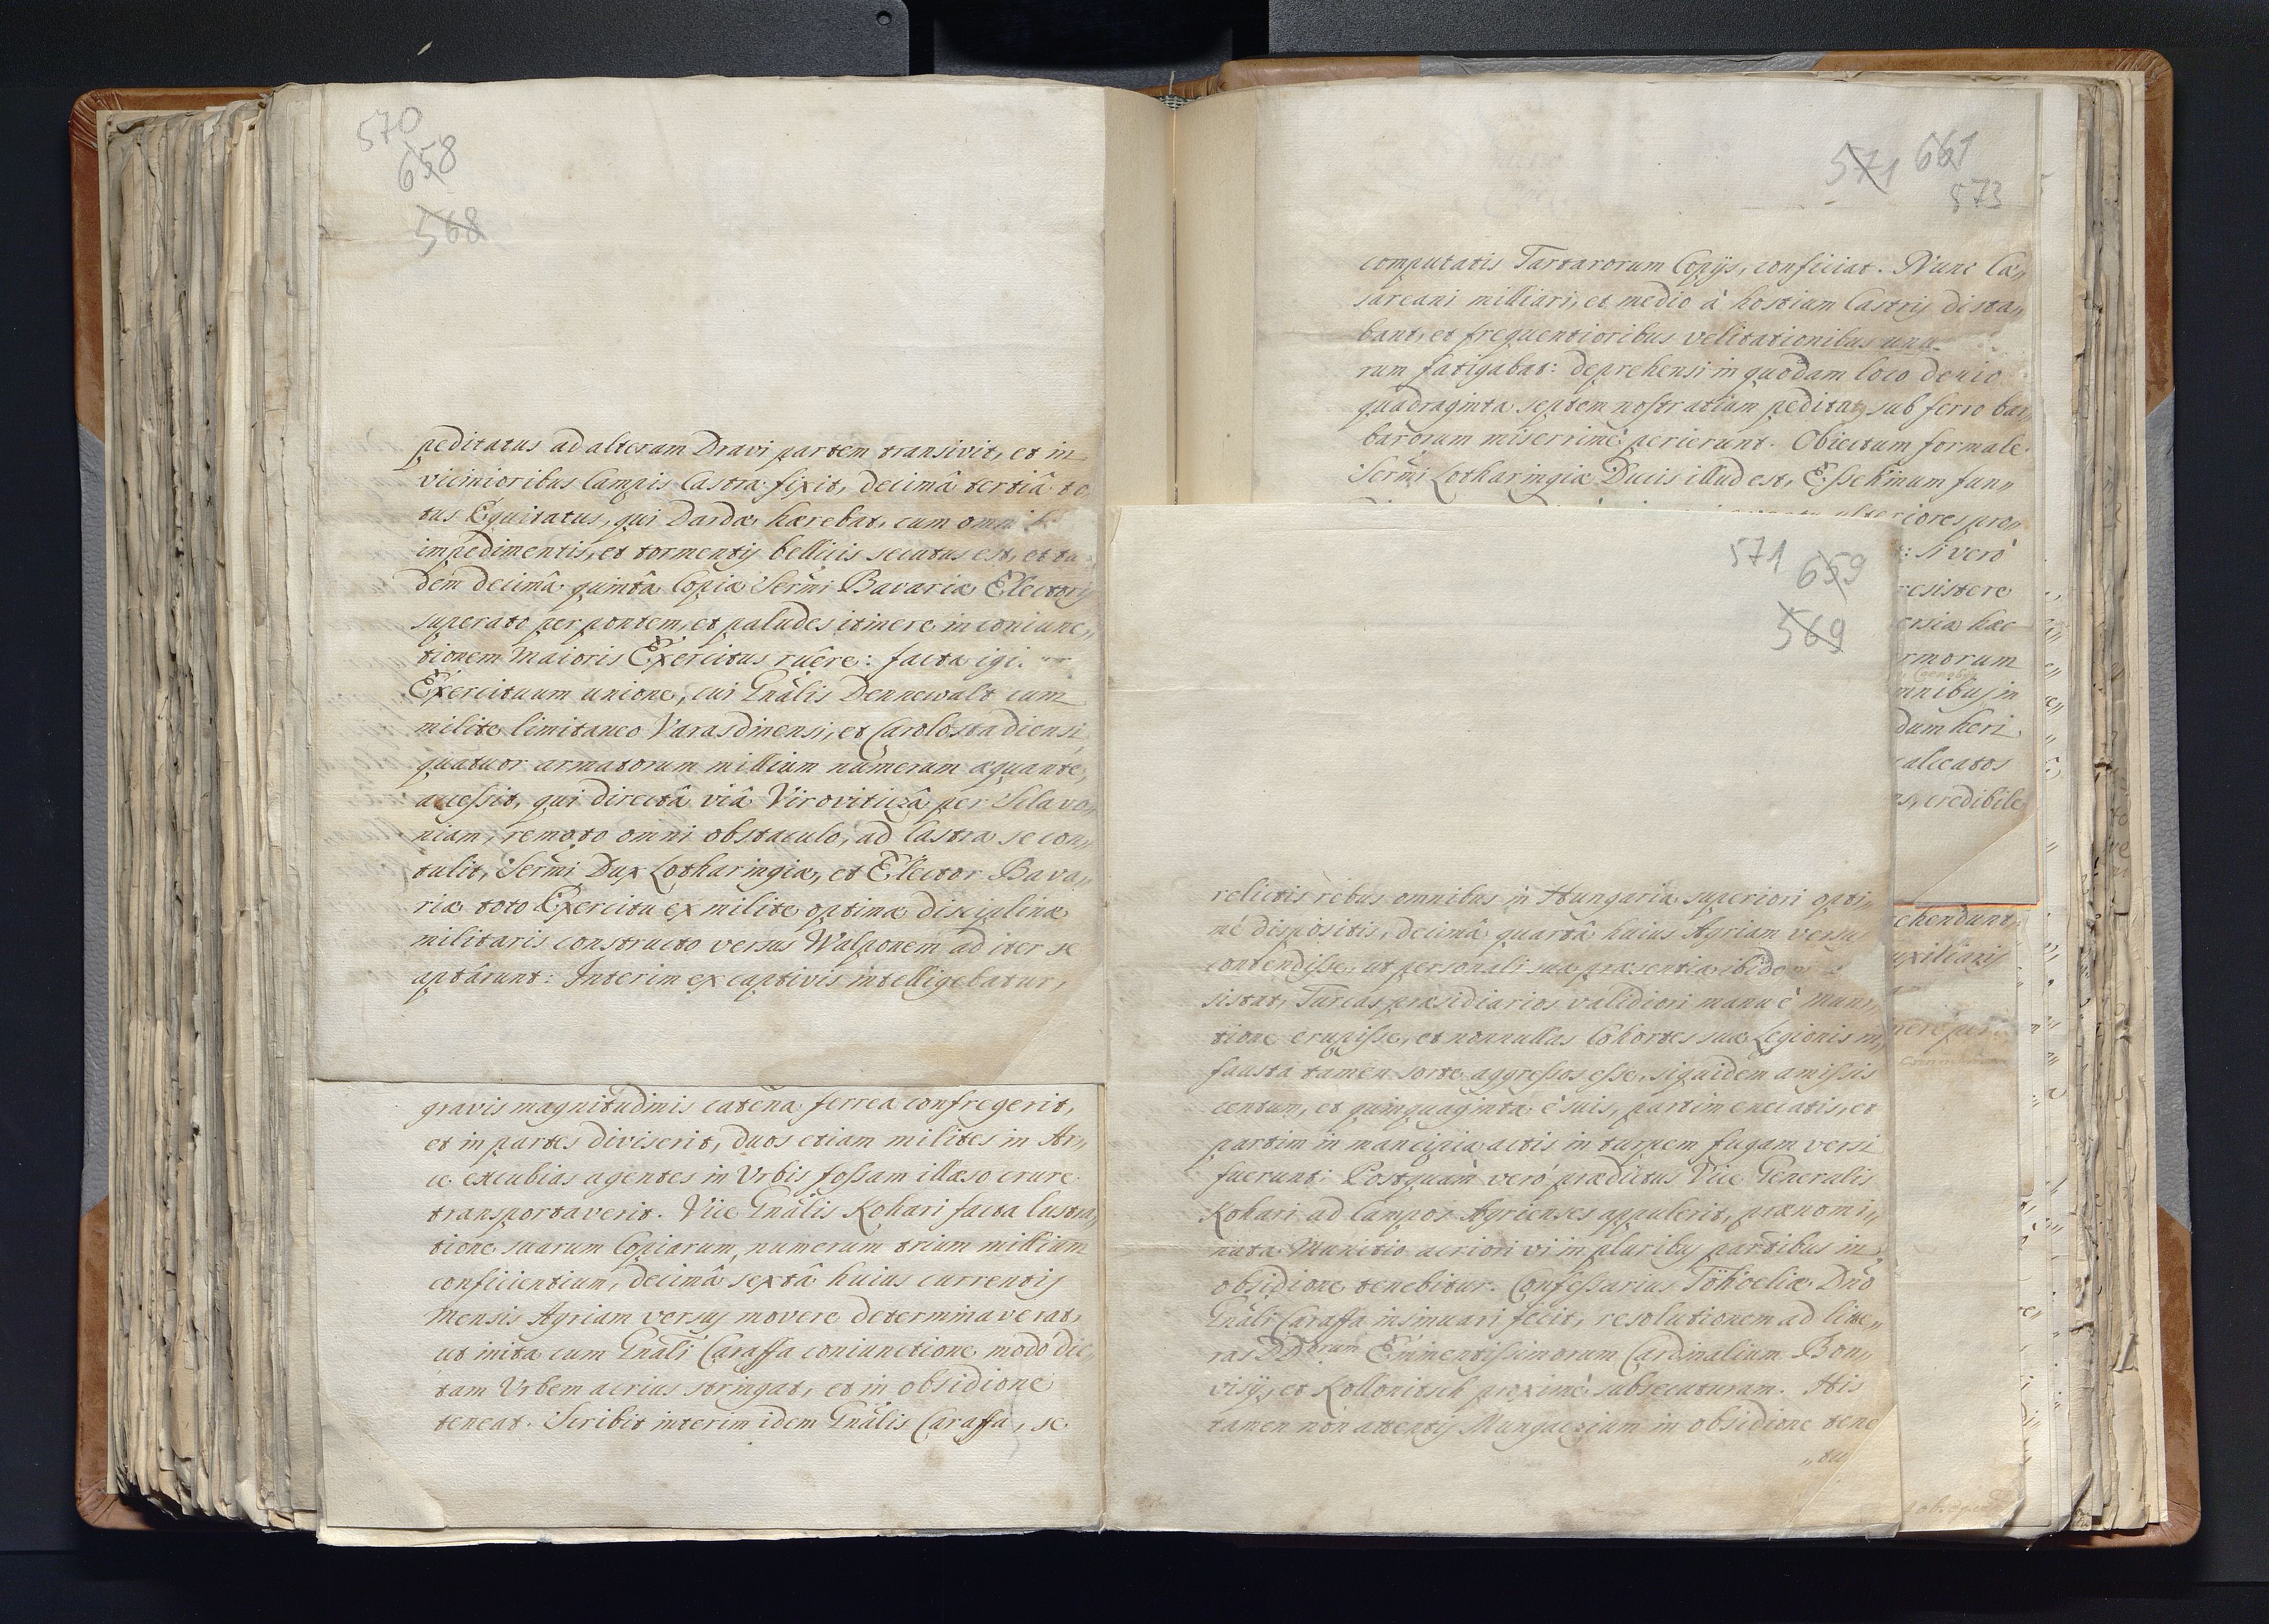 570
658
568
peditatus ad alteram Dravi partem transivit, et in
vicinioribus Campis Castra fixit, decimâ tertiâ to
tus Equitatus, qui Dardæ hærebat, cum omni
impedimentis, et tormentis bellicis secutus est, et
dem decimâ quintâ Copiæ Sermi Bavariæ Electoris
superato per pontem, et paludes itinere in coniunc„
tionem Maioris Exercitus ruêre: facta igi
Exercituum unione, cui Gnâlis Dennewalt cum
milite limitaneo Varasdinensi, et Carolostadiensi
quatuor armatorum millium numerum æquante,
accessit, qui directâ viâ Viroviticzâ per Sclavo„
niam, remoto omni obstaculo, ad Castra se con„
tulit, Sermi Dux Lotharingiæ, et Elector Bava„
riæ toto Exercitu ex milite optimæ disciplinæ
militaris constructo versus Walponem ad iter se
aptârunt: Interim ex captivis intelligebatur,
gravis magnitudinis catena ferrea confregerit,
et in partes diviserit, duos etiam milites in Ar„
ce excubias agentes in Vrbis fossam illæso crure
transportaverit. Vice Gnâlis Kohari facta lustra„
tione suarum Copiarum, numerum trium millium
conficientium, decimâ sextâ huius currentis
Mensis Agriam versus movere determinaverat,
ut inita cum Gnâli Caraffa coniunctione modò dic„
tam Vrbem acrius stringat, et in obsidione
teneat. Scribit interim idem Gnâlis Caraffa, se
571 661
573
computatis Tartarorum Copijs, conficiat. Nunc Cæ„
sareani milliari, et medio à hostium Castris dista„
bant, et frequentioribus velitationibus unu
rum fatigabat: deprehensi in quodam loco devio
quadraginta septem nostratium peditat, sub ferro bar„
barorum miserrimè perierunt. Obiectum formale
Sermi Lotharingiæ Ducis illud est, Essekinum fun„
ulteriores pro„
: si verò
resistere
ersia hæc
rmorum
mnibus in
dum heri
calceatos
s, credibile
571 659
569
relictis rebus omnibus in Hungaria superiori opti„
mè dispositis, decimâ quartâ huius Agriam versus
contendisse, ut personali sua præsentia ibide
sistat, Turcas præsidiarios validiori manu è Muni„
tione erupisse, et nonnullas Cohortes suæ Legionis in„
fausta tamen sorte aggressos esse, siquidem amissis
centum, et quinquaginta è suis, partim enecatis, et
partim in mancipia actis in turpem fugam versi
fuerunt: Postquam verò prædictus Vice Generalis
Kohari ad Campos Agrienses appulerit, prænomi„
nata Munitio acriori vi in pluribus partibus in
obsidione tenebitur. Confessarius Tökoeliæ Dno
Gnâli Caraffa insinuari fecit, resolutionem ad litte„
ras DDorum Eminentissimorum Cardinalium Bon„
visij, et Kollonitsch proximè subsecuturam. His
tamen non attentis Mungaczium in obsidione tene
„tu
ehendunt,
uxiliaris